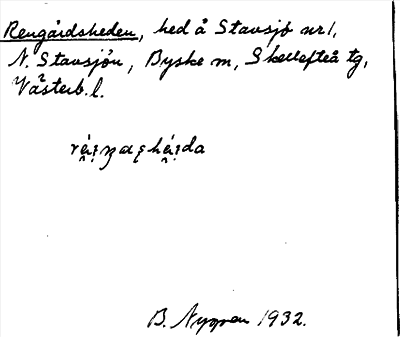 Rengårdsheden, hed å Stavsjö nr 1,
N. Stavsjön, Byske m, Skellefteå tg,
Västerb. l.
B. Nygren 1932.